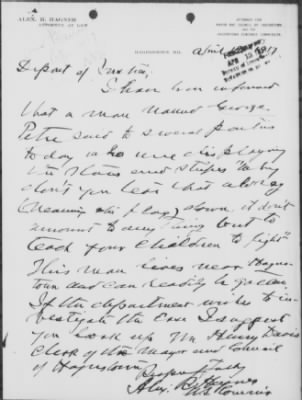 ALEX. R. HAGNER
ATTORNEY AT LAW
ATTORNEY FOR
MAYOR AND COUNCIL OF HAGERSTOWN
AND THE
HAGERSTOWN
HAGERSTOWN, MD. April 1917.
APR 13
Depart of Justice,
I have been informed
that a man named George
Petre said to several parties
to day who were displaying
the Stars and Stripes "Why
don't you tear that
(meaning the flag) down, it don't
amount to any thing but to
lead your children to fight"
This man lives near Hagers
town and can readily be
If the department wishes to in-
vestigate the case I suggest
you look up Mr Henry Davis
clerk of the Mayor and Council
of Hagerstown.
Respectfully
Alex. R. Hagner